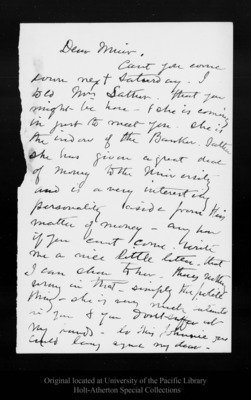 Dear Muir,
Can't you come
down next Saturday. I
told Mrs Sather that you
might be here - & she is coming
in just to meet you. She is
the widow of the Banker Sather
she has given a great deal
of money to the University
and is a very interesting
personality aside from this
matter of money - any how
if you can't come. Write
me a nice little letter that
I can show to her.
in that - simply the polite
she is very much
in you & you don't
my
long my dear -
Original located at University of the Pacific Library
Holt-Atherton Special Collections